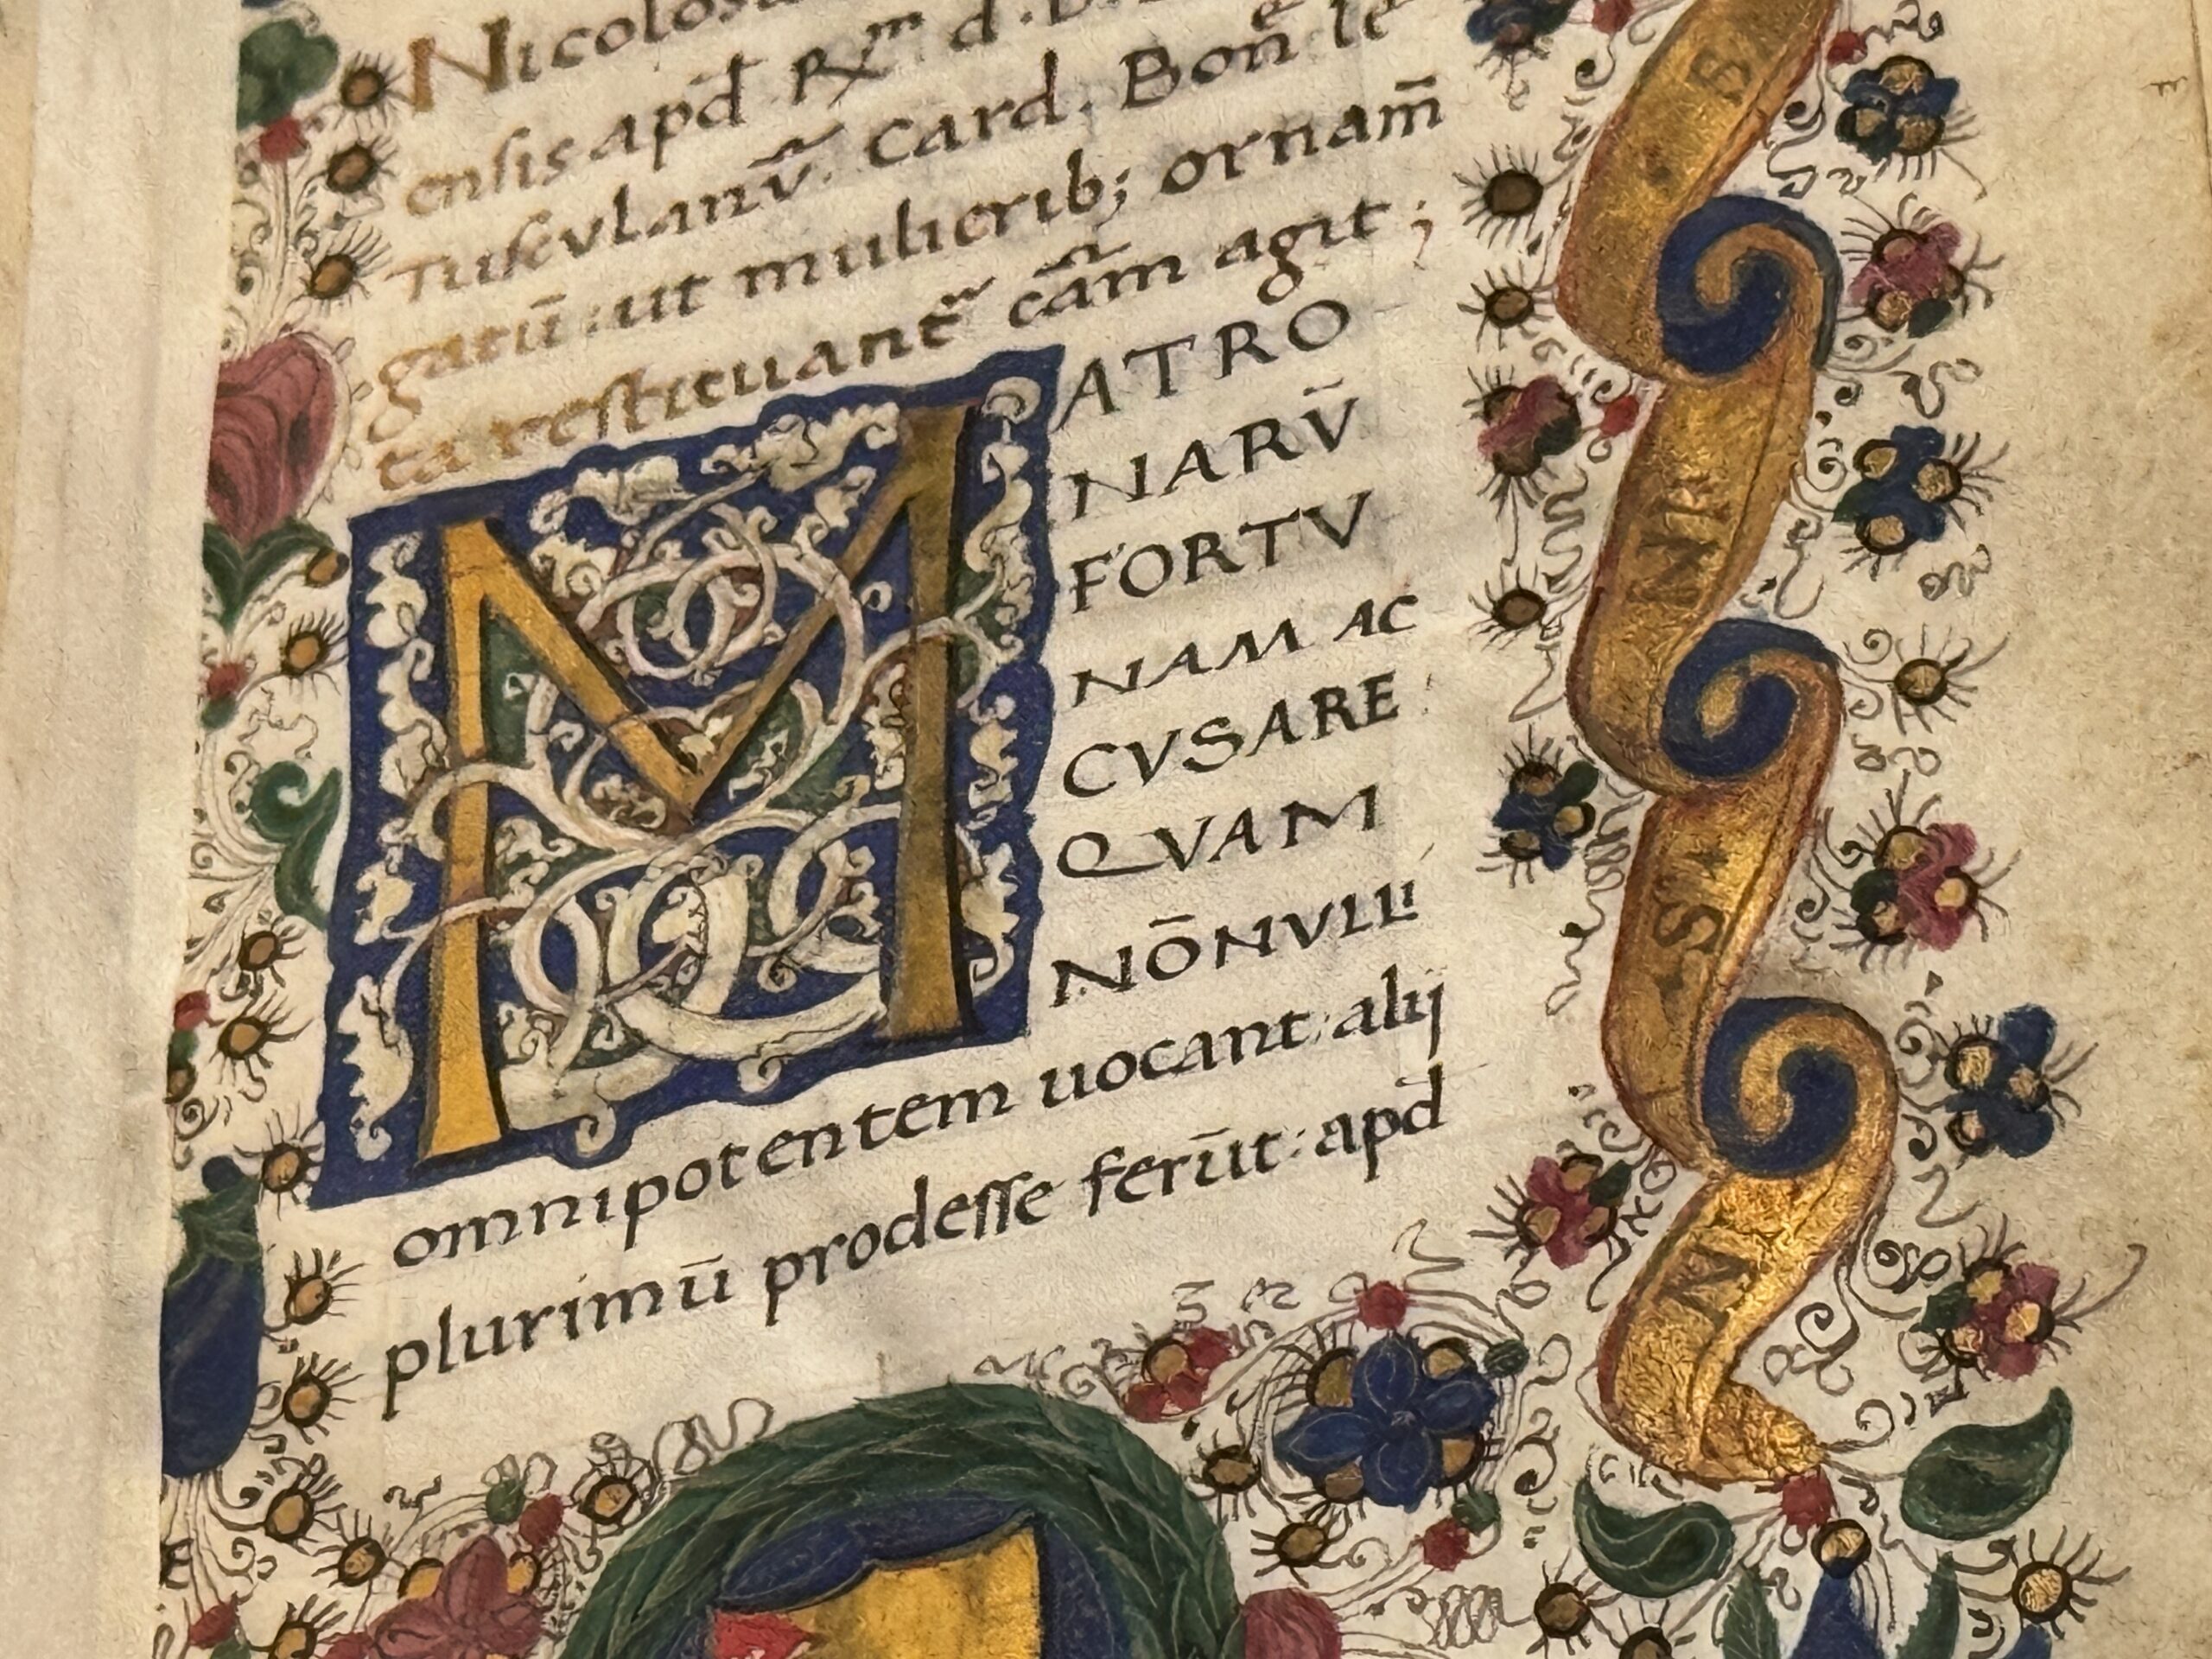 Nicolosa
ensis apd̄ Rx̄m d. D.
Tusculanū. Card. Bonē le
gatū: ut mulierib; ornam̄
ta restituant᷑ cām agit;
MATRO
NARŪ
FORTV
NAM AC
CVSARE
QVAM
NŌNVLLI
omnipotentem uocant: alij
plurimū prodesse ferūt: apd̄
NN
S
N